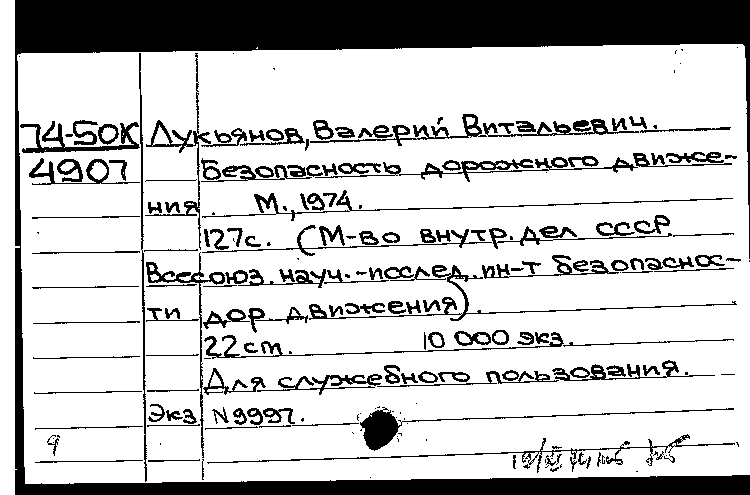 74-50К Лукьянов, Валерий Витальевич.
4907 Безопасность дорожного движе-
ния. М., 1974.
127с. (М-во внутр. дел СССР
Всесоюз. науч.-послед. ин-т безопаснос-
ти дор. движения).
22 см. 10 000 экз.
Для служебного пользования.
Экз N9997.
9